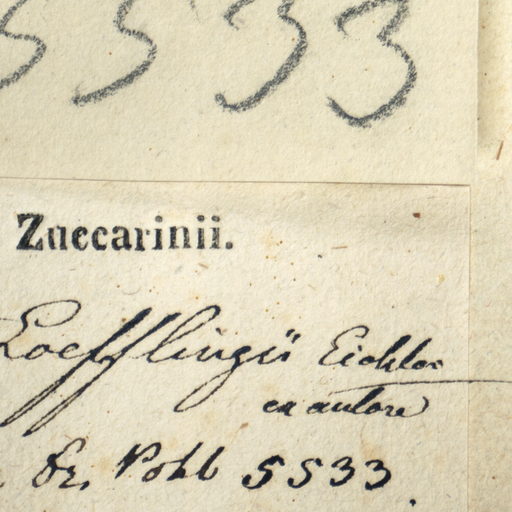 5533
Zuccarinii.
Loefflingii Eichler
ex autore
Dr. Pohl 5533.